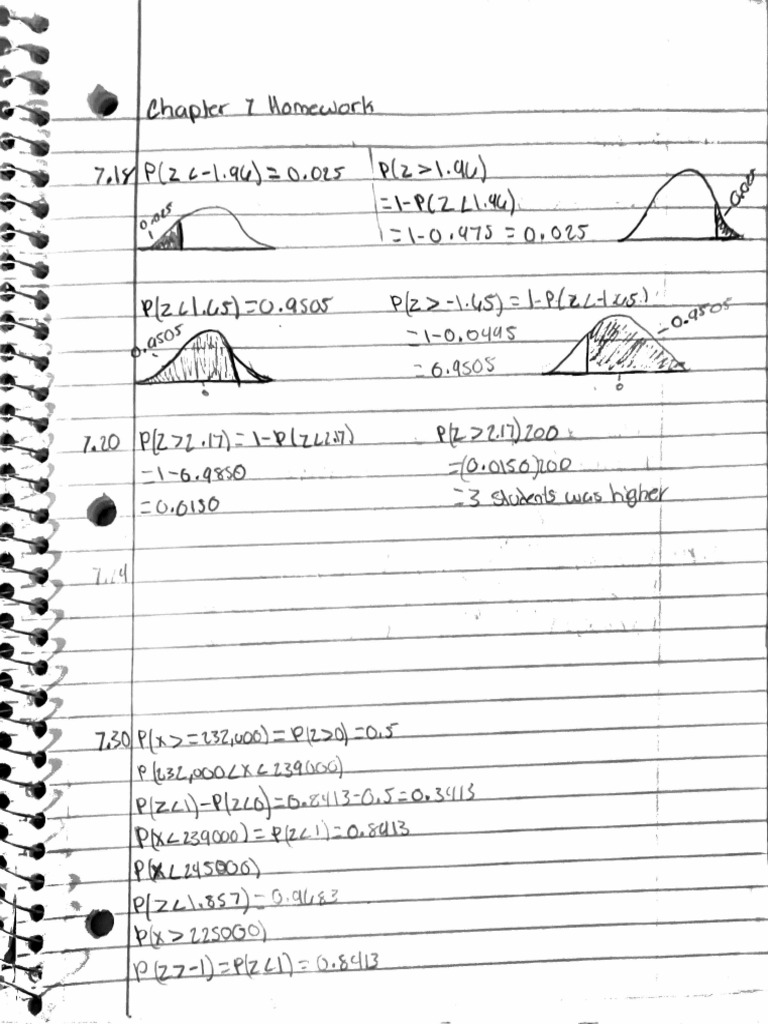 Chapter 7 Homework
7.18 P(Z<-1.96)=0.025
0.025
P(Z>1.96)
=1-P(Z<1.96)
=1-0.975=0.025
0.025
P(Z<1.65)=0.9505
0.9505
0
P(Z>-1.65)=1-P(Z<-1.65)
=1-0.0495
=0.9505
0.9505
0
7.20 P(Z>2.17)=1-P(Z<2.17)
=1-0.9850
=0.0150
P(Z>2.17)200
=(0.0150)200
=3 students was higher
7.30 P(X>=232,000)=P(Z>0)=0.5
P(232,000<X<239000)
P(Z<1)-P(Z<0)=0.8413-0.5=0.3413
P(X<239000)=P(Z<1)=0.8413
P(X<245000)
P(Z<1.857)=0.9683
P(X>225000)
P(Z>-1)=P(Z<1)=0.8413